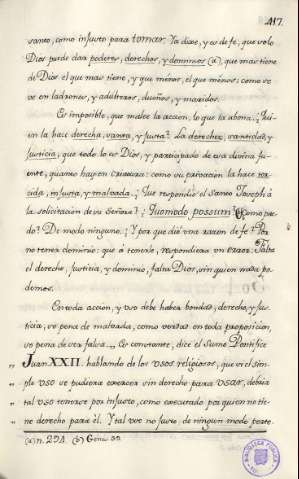 417.
santo, como injusto para tomar. Ya dixe, y es de fe, que solo
Dios puede dar poderes, derechos, y dominios (a), que mas tiene
de Dios el que mas tiene, y que ménos, el que ménos: como se
ve en ladrones, y adúlteros, dueños, y maridos.
Es imposible, que malee la accion, lo que la abona.
la hace derecha, santa, y justa? La derechez, santidad, y
justicia, que todo lo es Dios, y participado de esa divina fu-
ente, quanto hay en criatura: como su privacion la hace tor-
cida, injusta, y malvada. ¿Que respondió el Santo Joseph á
la solicitacion de su Señora? ¿Quomodo possum? ¿Cómo pue-
do? De modo ninguno. ¿Y por qué dió esa razon de fe? Por
no tener dominio: que á tenerlo, respondiera un error. Falta
el derecho, justicia, y dominio, falta Dios, sin quien nada po-
demos.
En toda accion, y uso debe haber bondad, derecho, y jus-
ticia, so pena de malvada, como verdad en toda proposicion,
so pena de ser falsa. Es constante, dice el Sumo Pontifice
Juan XXII. hablando de los usos religiosos, que si el sim-
ple uso se pudiera exercer sin derecho para usar, debia
tal uso tenerse por injusto, como executado por quien no tie-
ne derecho para él. Y tal uso no justo, de ningun modo perte-
(a) n. 294. (b) Genes. 39.